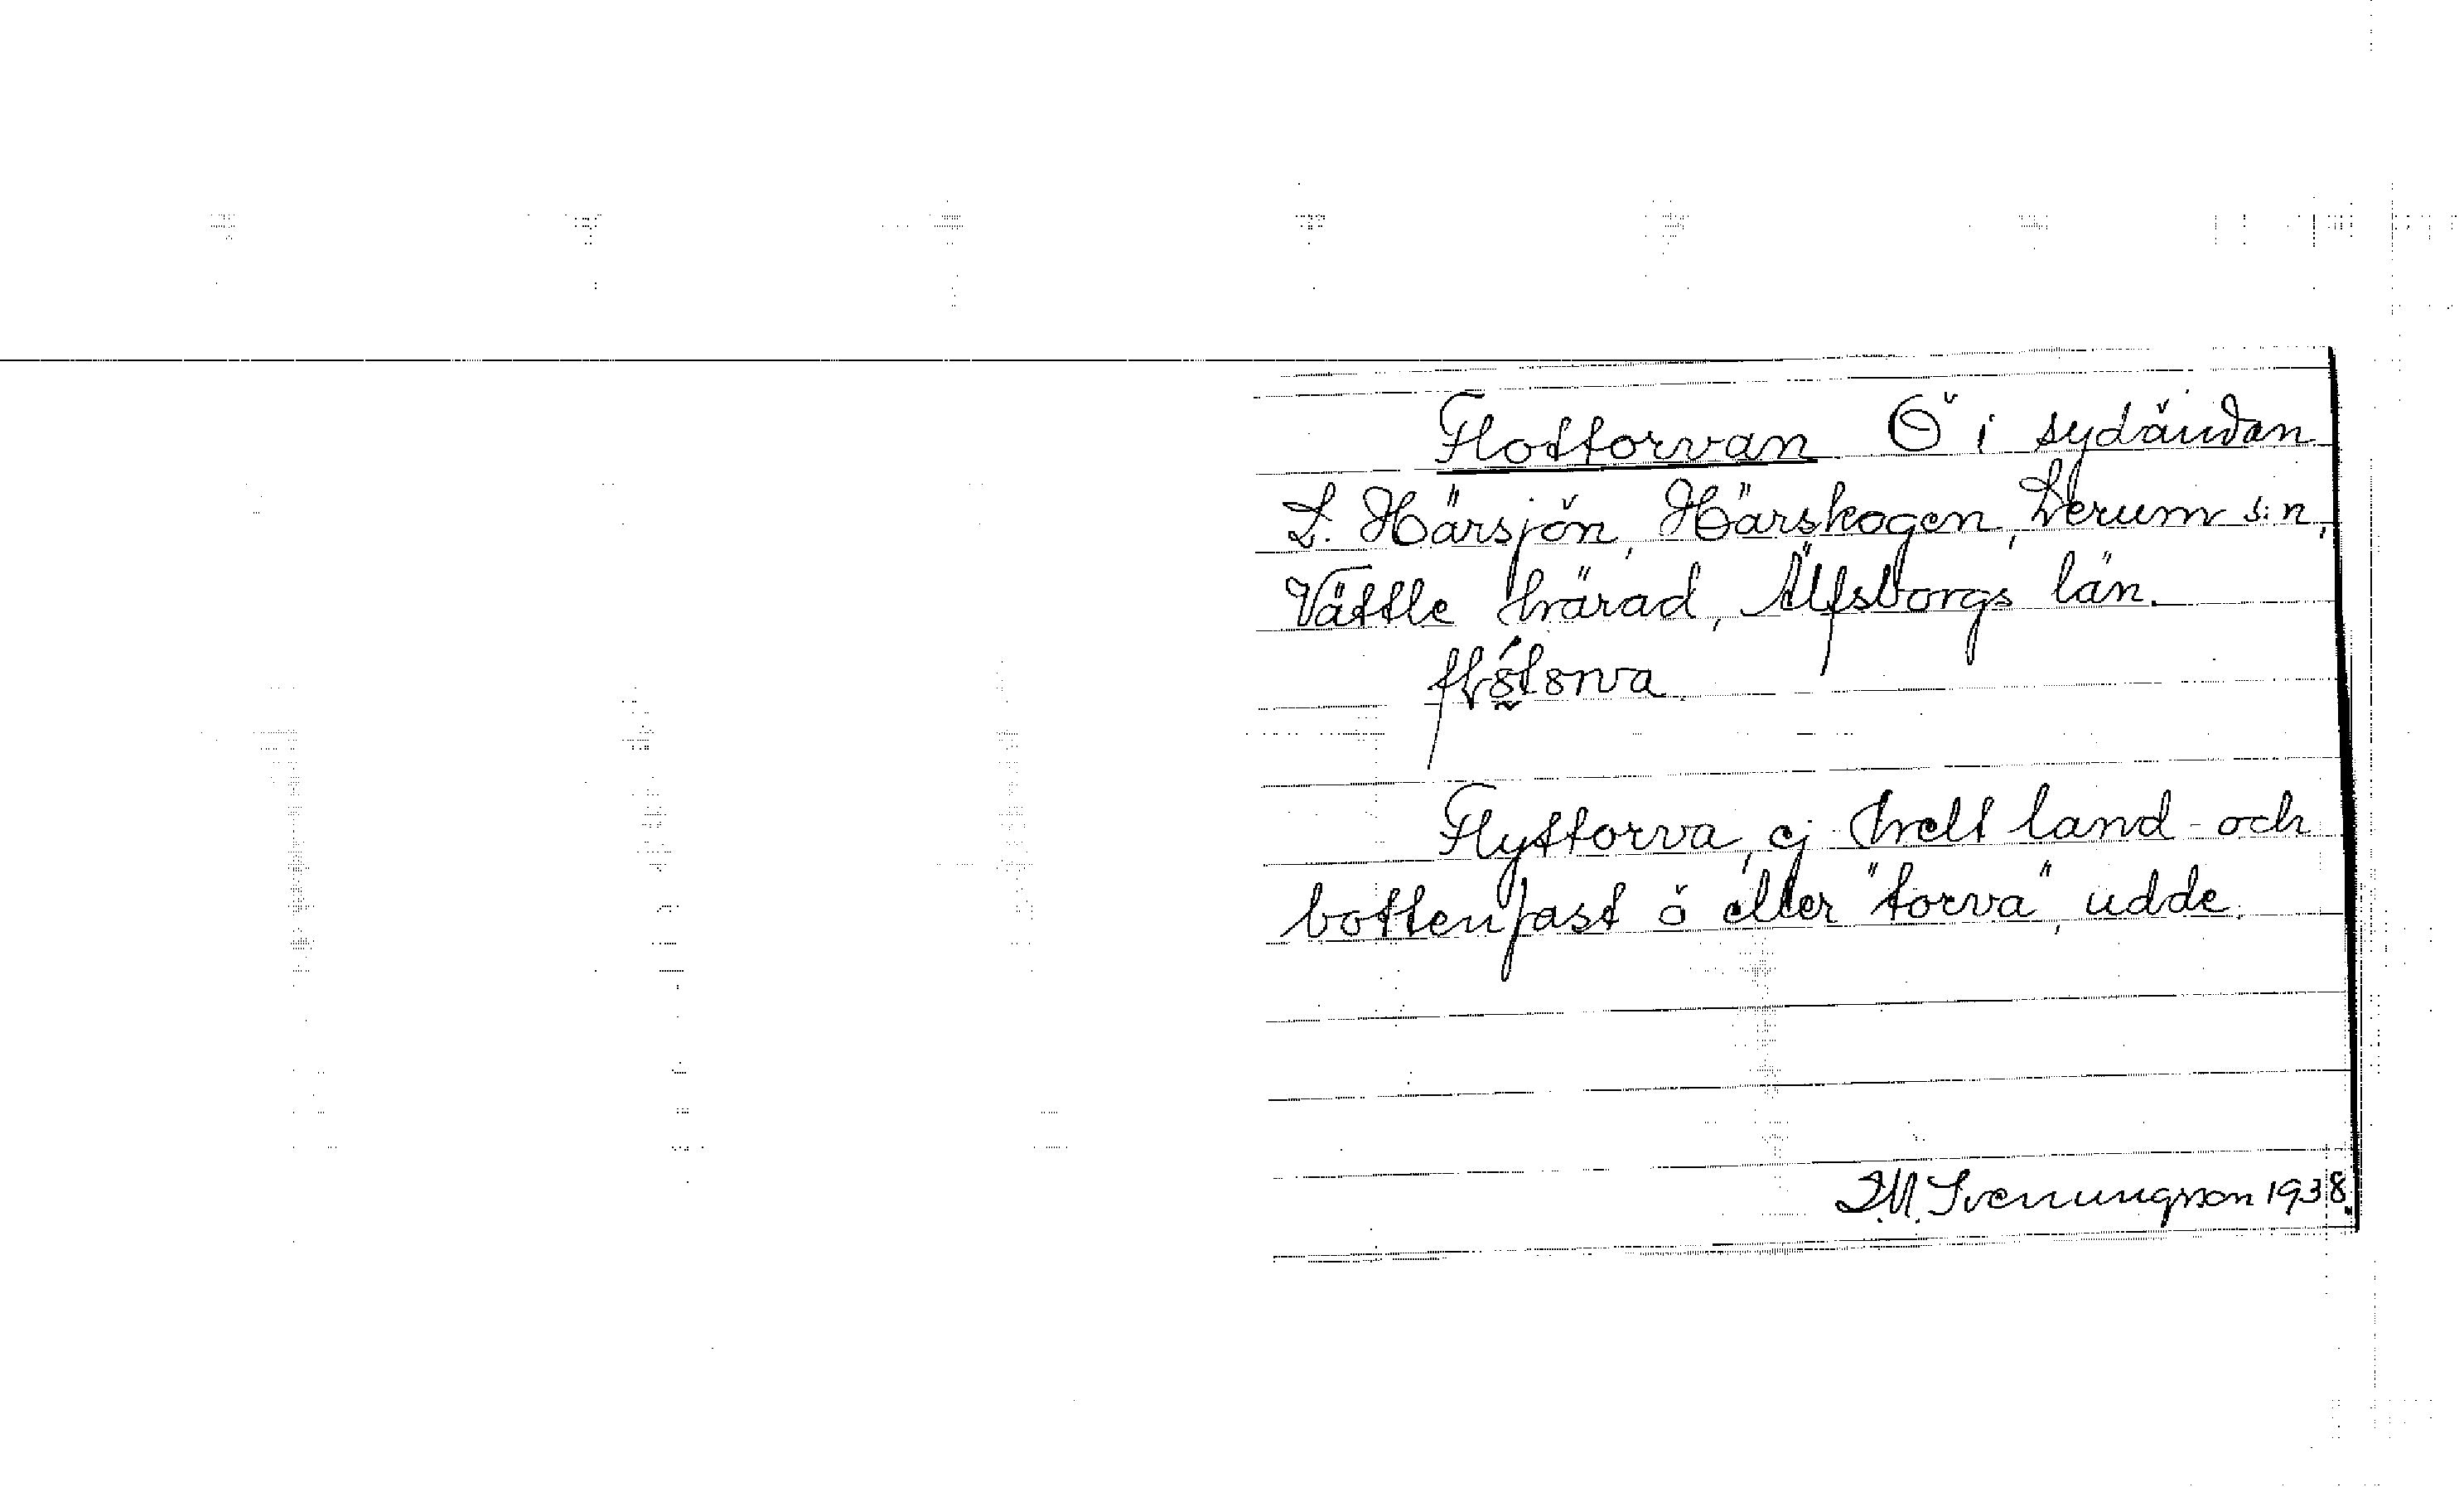 Flottorvan Ö i sydändan
L. Härsjön, Härskogen, Lerum s:n,
Vättle härad, Älfsborgs län.
Flyttorva, ej helt land- och
bottenfast ö eller "torva", udde.
Svenungsson 1938.